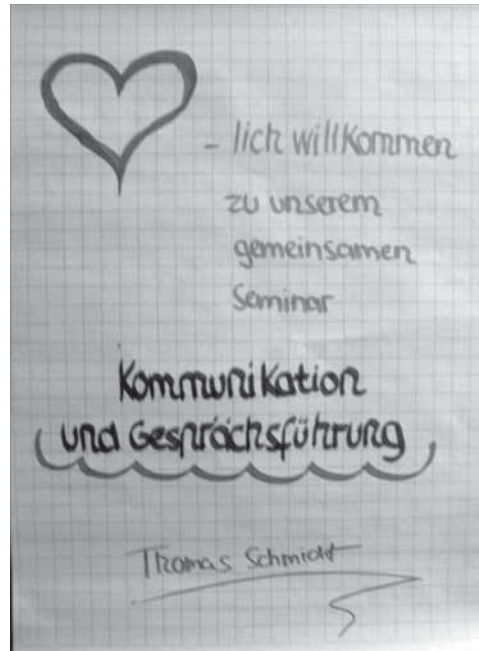 - lich willkommen
zu unserem
gemeinsamen
Seminar
Kommunikation
und Gesprächsführung
Thomas Schmidt